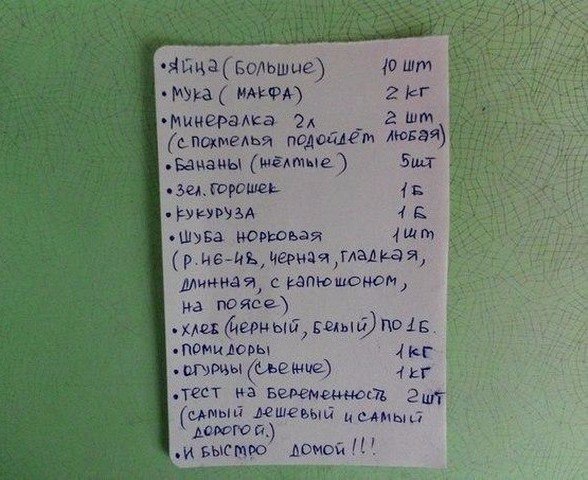 • Яйца (большие) 10 шт
• Мука (МАКФА) 2 кг
• Минералка 2л 2 шт
(с похмелья подойдёт любая)
• Бананы (жёлтые) 5шт
• Зел. горошек 1 Б
• Кукуруза 1 Б
• Шуба норковая 1 шт
(р. 46-48, черная, гладкая,
длинная, с капюшоном,
на поясе)
• Хлеб (черный, белый) по 1 Б.
• Помидоры 1 кг
• Огурцы (свежие) 1 кг
• Тест на беременность 2 шт
(самый дешевый и самый
дорогой.)
• И быстро домой!!!